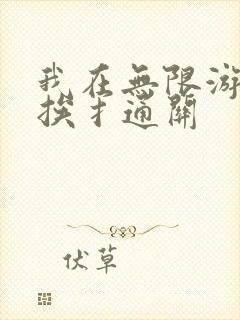 我在無限游
挨扌通關
伏草